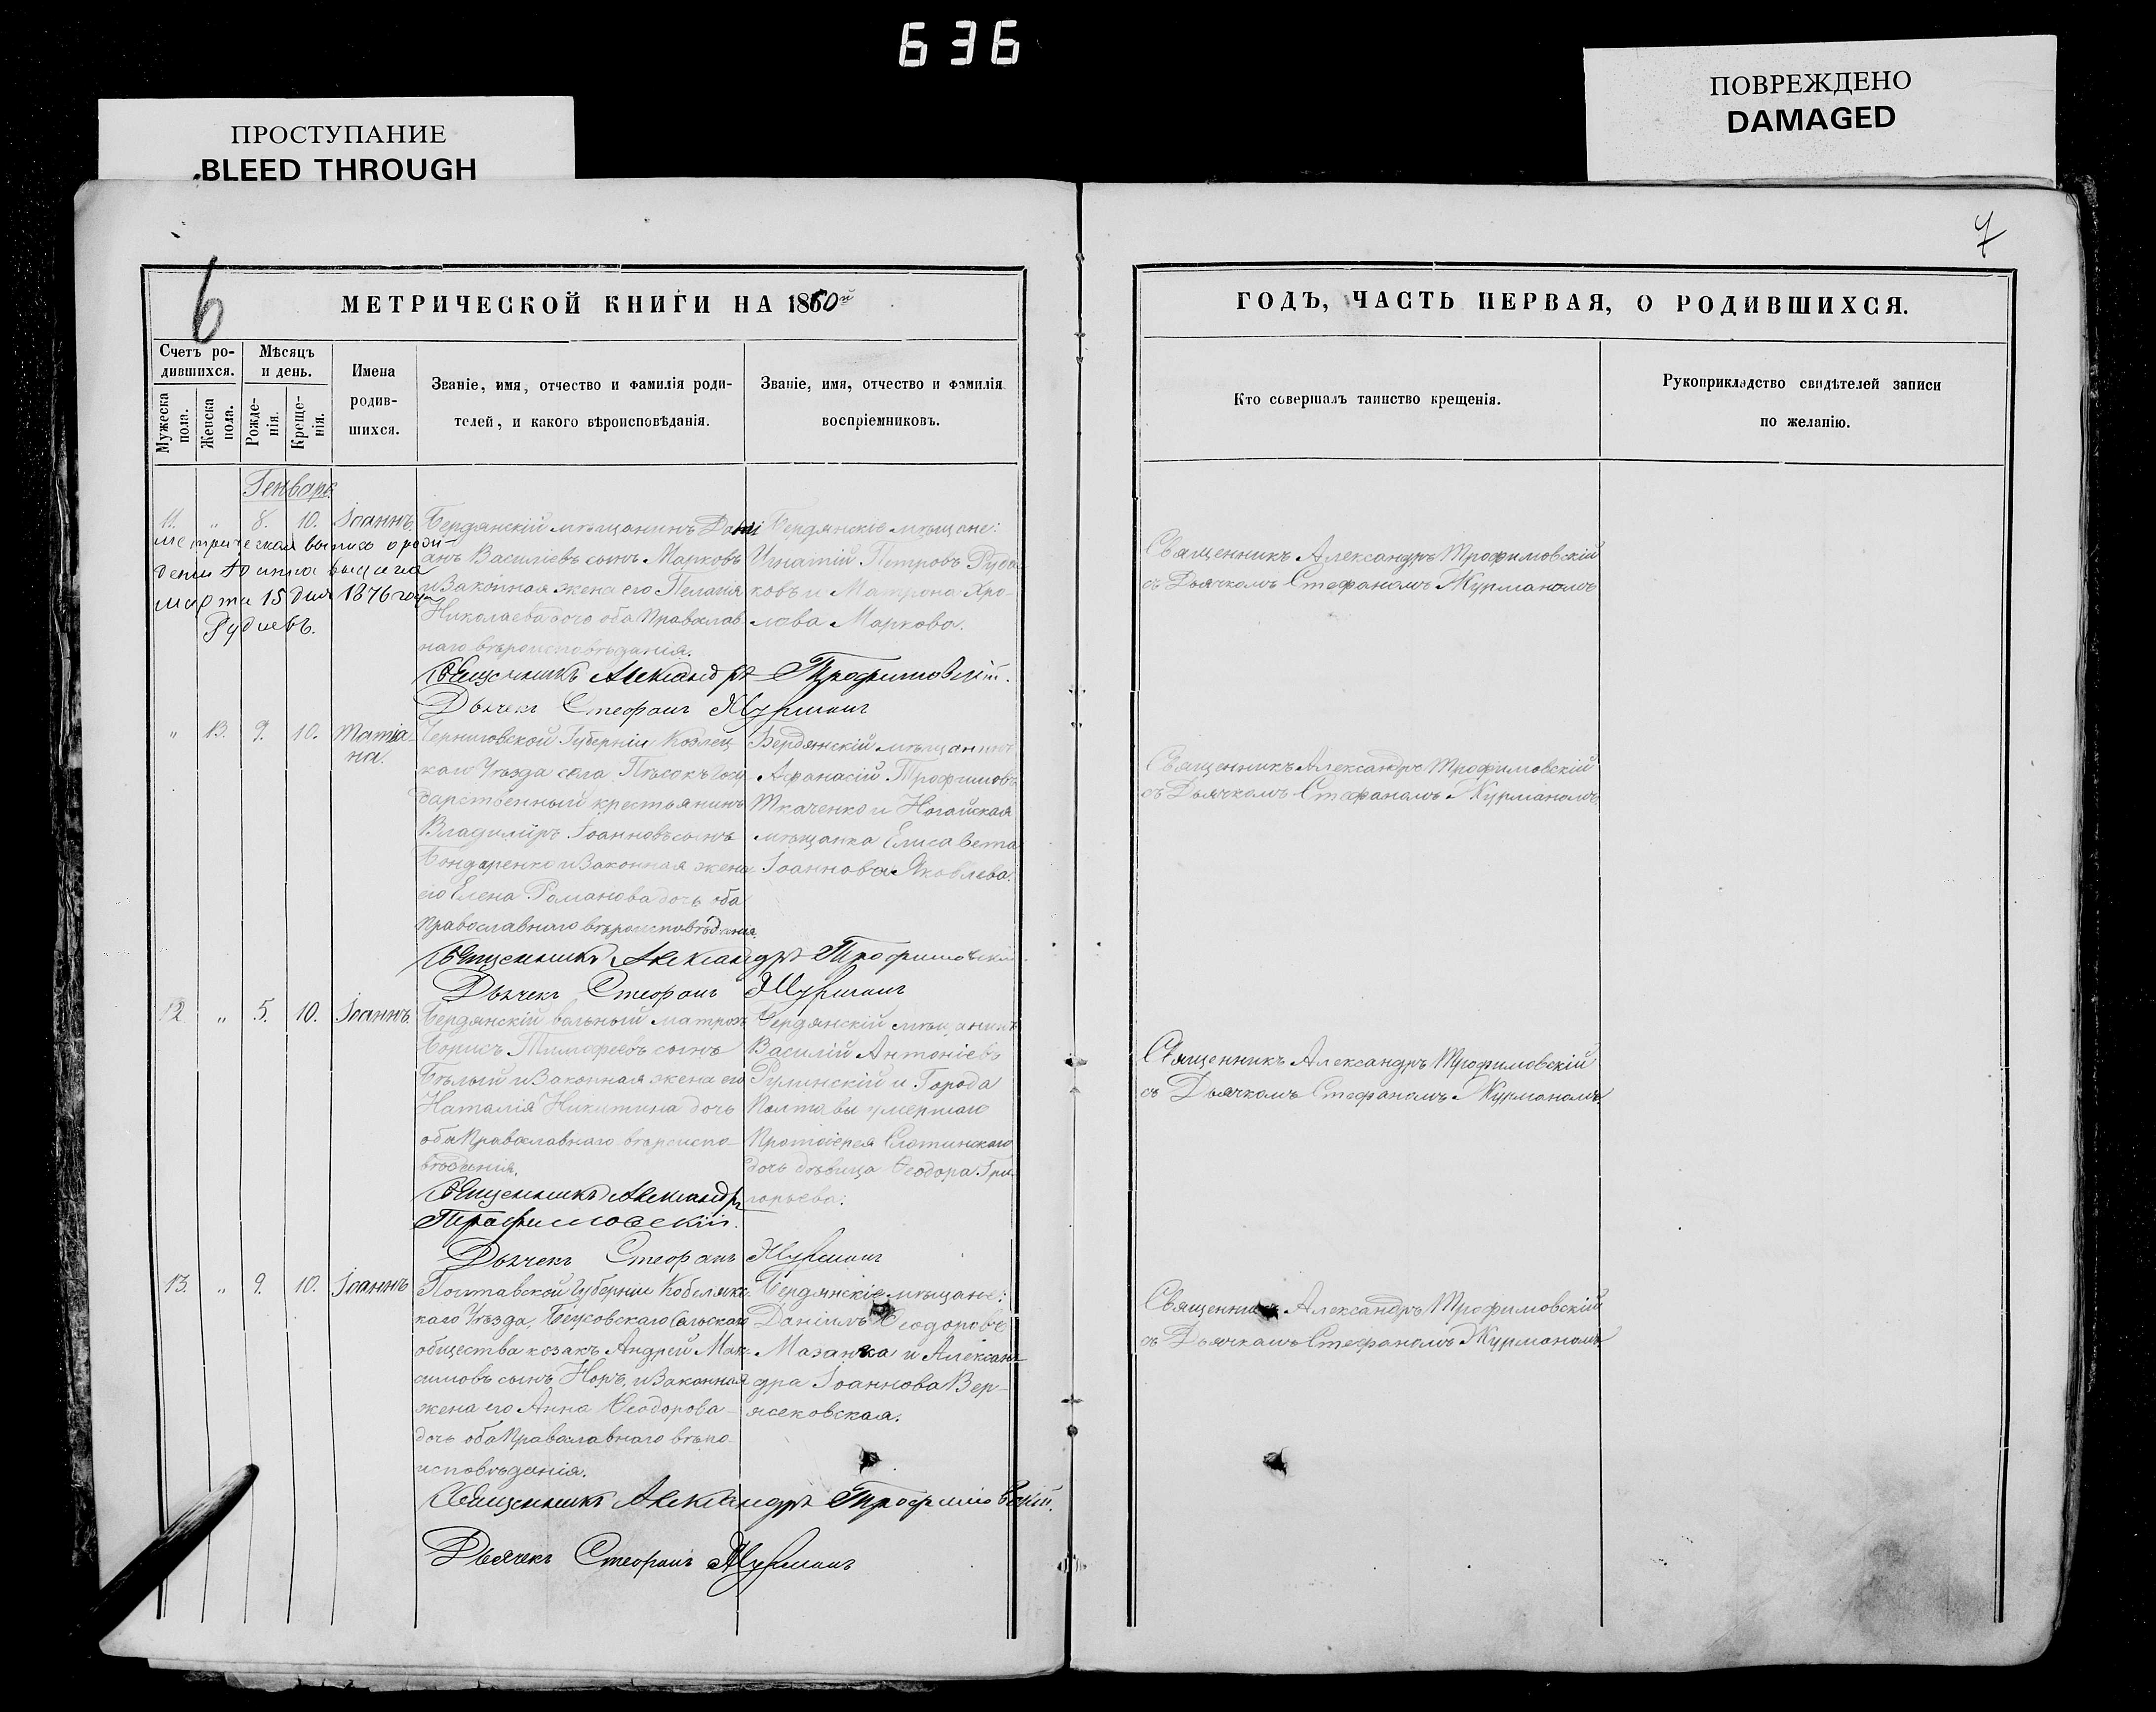 636
ПРОСТУПАНИЕ
BLEED THROUGH
ПОВРЕЖДЕНО
DAMAGED
6
7
МЕТРИЧЕСКОЙ КНИГИ НА 1860й
ГОДЪ, ЧАСТЬ ПЕРВАЯ, О РОДИВШИХСЯ.
Счетъ ро-
дившихся.
Мужеска
пола.
Женска
пола.
Мѣсяцъ
и день.
Рожде-
нія.
Креще-
нія.
Имена
родив-
шихся.
Званіе, имя, отчество и фамилія роди-
телей, и какого вѣроисповѣданія.
Званіе, имя, отчество и фамилія
воспріемниковъ.
Кто совершалъ таинство крещенія.
Рукоприкладство свидѣтелей записи
по желанію.
Генварь
11. „ 8. 10. Іоаннъ.
Метрическая выпись о рож
дении выдана
марта 15 дня 1876 года
Бердянскій мѣщанинъ Дамі
анъ Василіевъ сынъ Марковъ
и Законная жена его Пелагія
Николаева дочь оба Православ
наго вѣроисповѣданія.
Бердянскіе мѣщане:
Игнатій Петровъ Рудо
ковъ и Матрона Хро-
лова Маркова.
Священникъ Александръ Трофимовскій.
Дьячекъ Стефанъ Журманъ
Священникъ Александръ Трофимовскій
съ Дьячкомъ Стефаномъ Журманомъ
„ 13. 9. 10. Татіа
на.
Черниговской Губерніи Козлец
каго Уѣзда села Пѣсокъ Госу
дарственный крестьянинъ
Владиміръ Іоанновъ сынъ
Бондаренко и Законная жена
его Елена Романова дочь оба
Православнаго вѣроисповѣданія.
Бердянскій мѣщанинъ
Афанасій Трофимовъ
Ткаченко и Ногайская
мѣщанка Елисавета
Іоаннова Яковлева.
Священникъ Александръ Трофимовскій
Дьячекъ Стефанъ Журманъ
Священникъ Александръ Трофимовскій
съ Дьячкомъ Стефаномъ Журманомъ.
12 „ 5. 10. Іоаннъ.
Бердянскій вольный матрозъ
Борисъ Тимофеевъ сынъ
Бѣлый и Законная жена его
Наталія Никитина дочь
оба Православнаго вѣроиспо-
вѣданія.
Бердянскій мѣщанинъ
Василій Антоніевъ
и Города
Полтавы умершаго
Протоіерея
дочь дѣвица Ѳеодора Гри-
горьева.
Священникъ Александръ
Трофимовскій.
Дьячекъ Стефанъ Журманъ
Священникъ Александръ Трофимовскій
съ Дьячкомъ Стефаномъ Журманомъ.
13. „ 9. 10. Іоаннъ
Полтавской Губерніи Кобеляк-
каго Уѣзда, Сельскаго
общества козакъ Андрей Мак-
симовъ сынъ Норъ, и Законная
жена его Анна Ѳеодорова
дочь оба Православнаго вѣро-
исповѣданія.
Бердянскіе мѣщане:
Даніилъ Ѳеодоровъ
Мазанка и Алексан-
дра Іоаннова Вер-
Священникъ Александръ Трофимовскій.
Дьячекъ Стефанъ Журманъ
Священникъ Александръ Трофимовскій
съ Дьячкомъ Стефаномъ Журманомъ.